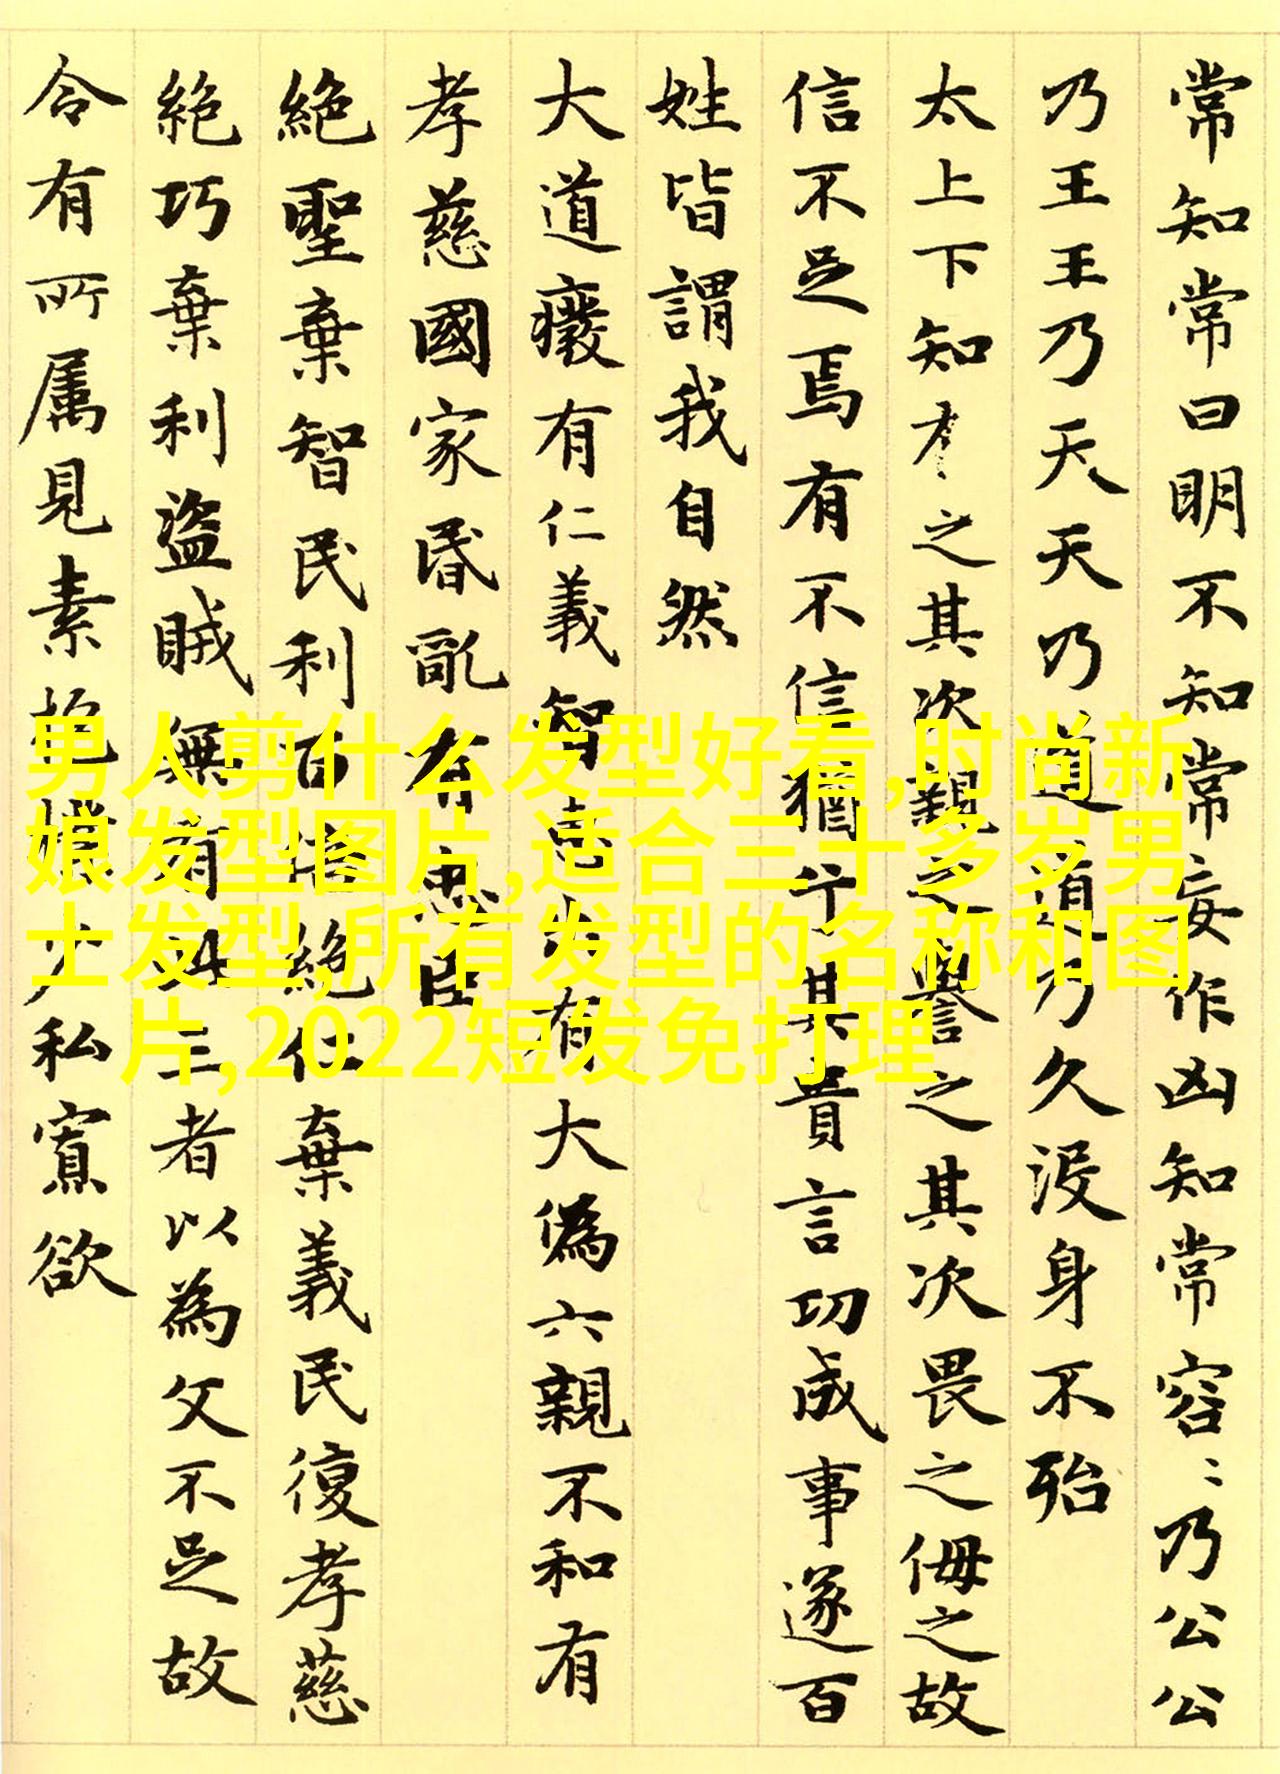 常知常曰明不知常妄作凶知常容〻乃公公
乃王王乃天天乃道道乃久没身不殆
太上下知有之其次親之譽之其次畏之侮之故
信不足焉有不信猶兮其貴言功成事遂百
姓皆謂我自然
大道癈有仁義智惠出有大偽六親不和有
孝慈國家昬亂有忠臣
絕聖棄智民利百倍絕仁棄義民復孝慈
絕巧棄利盜賊無有此三者以為文不足故
令有所属見素抱樸少私寡欲
男人剪什么发型好看,时尚新
娘发型图片,适合三十多岁男
士发型,所有发型的名称和图
片,2022短发免打理